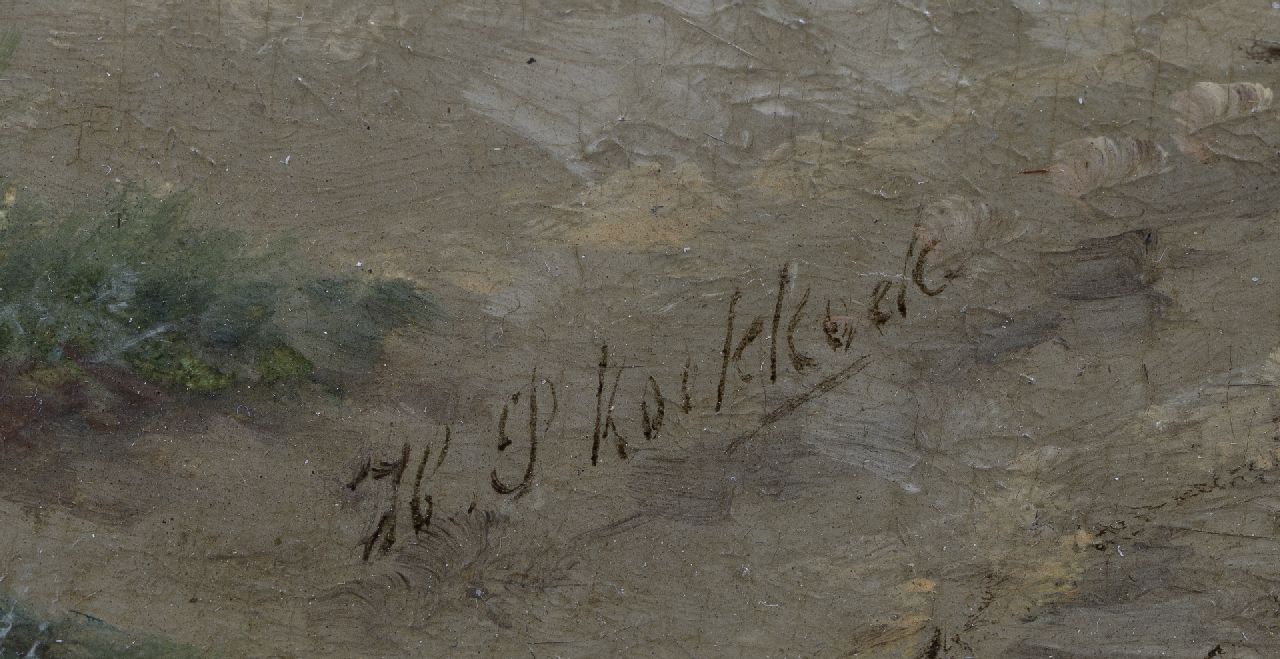 H. P Koekkoek